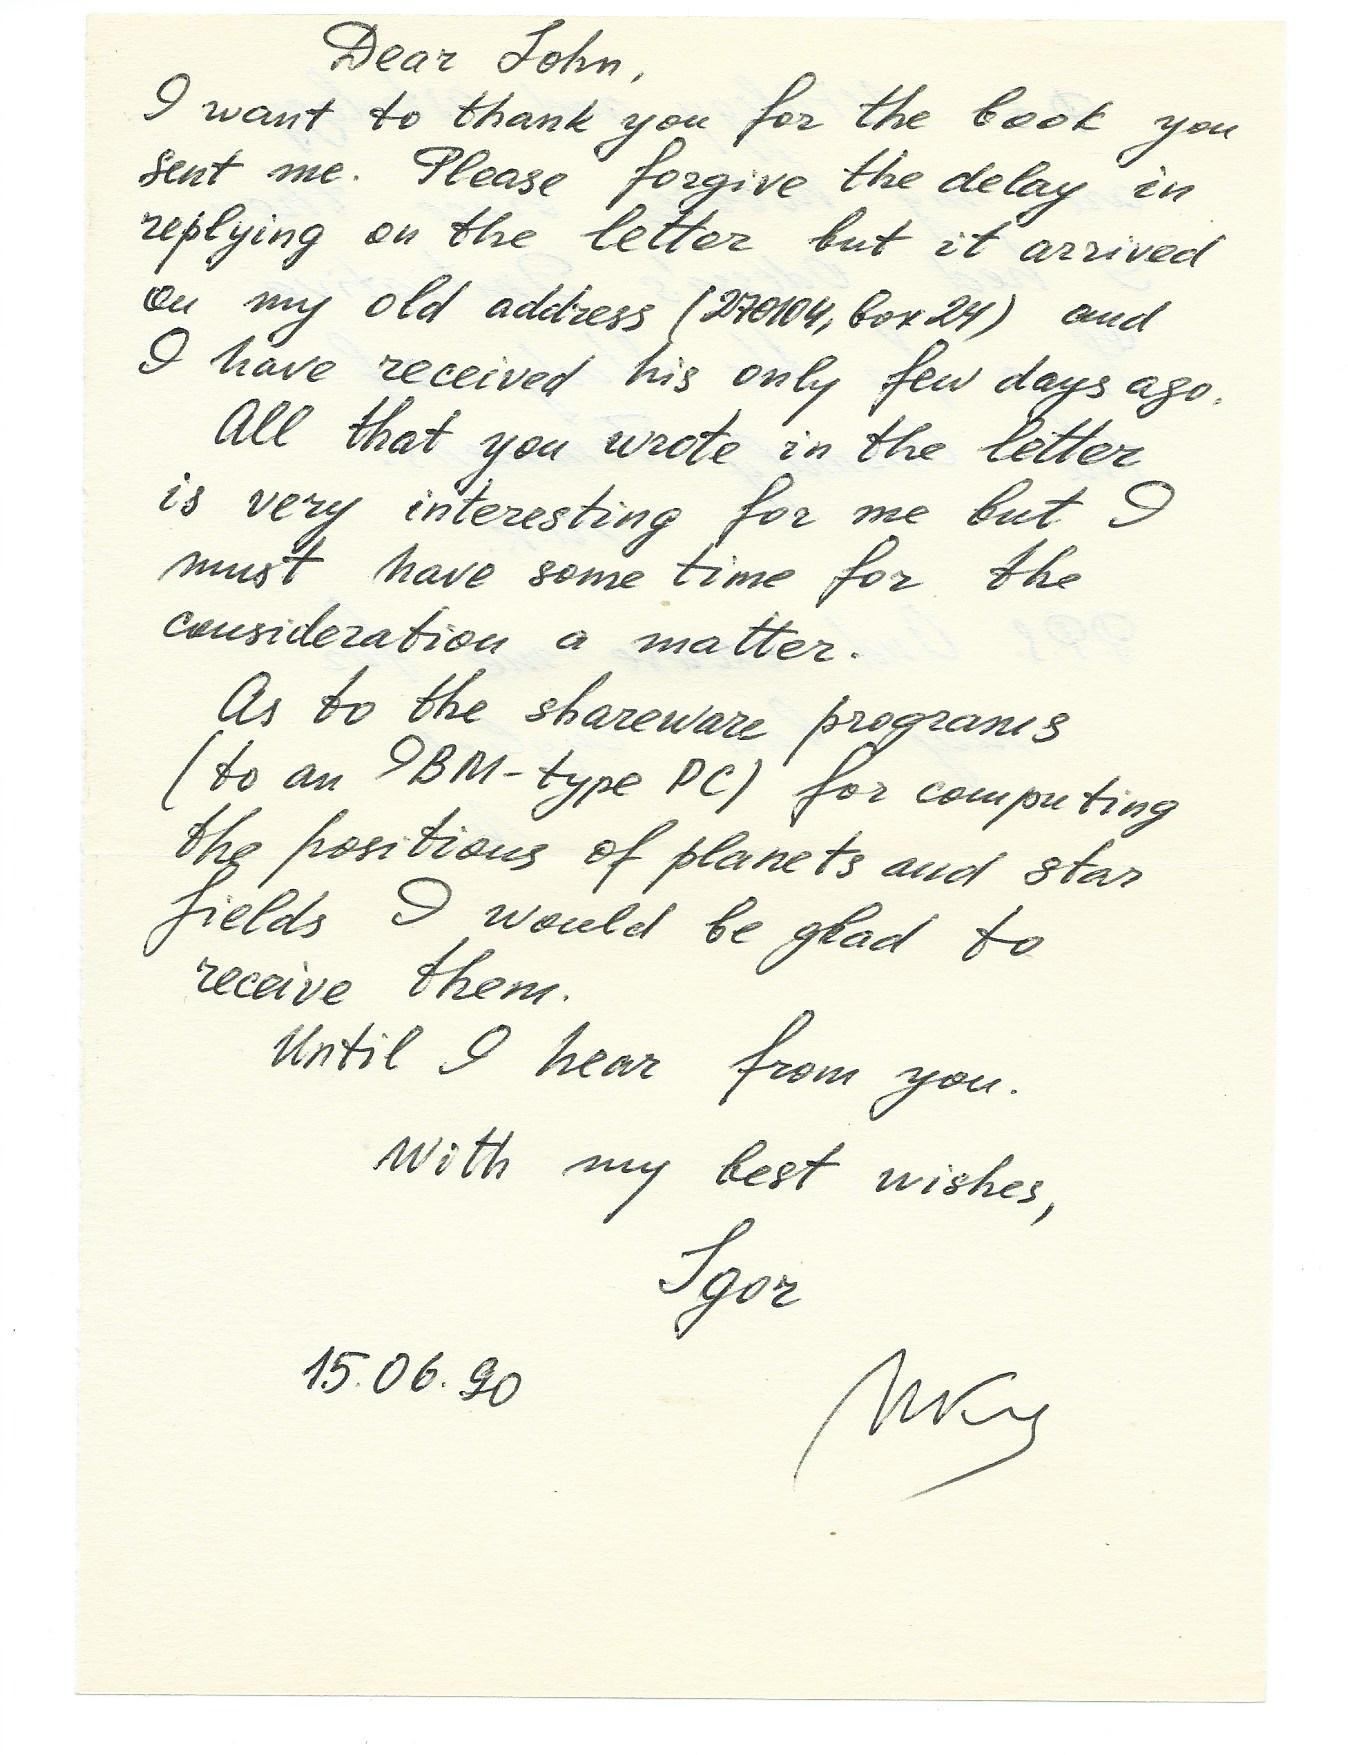 Dear John,
I want to thank you for the book you
sent me. Please forgive the delay in
replying on the letter but it arrived
on my old address (270104, box 24) and
I have received his only few days ago.
All that you wrote in the letter
is very interesting for me but I
must have some time for the
consideration a matter.
As to the shareware programs
(to an IBM-type PC) for computing
the positions of planets and star
fields I would be glad to
receive them.
Until I hear from you.
With my best wishes,
Igor
15.06.90